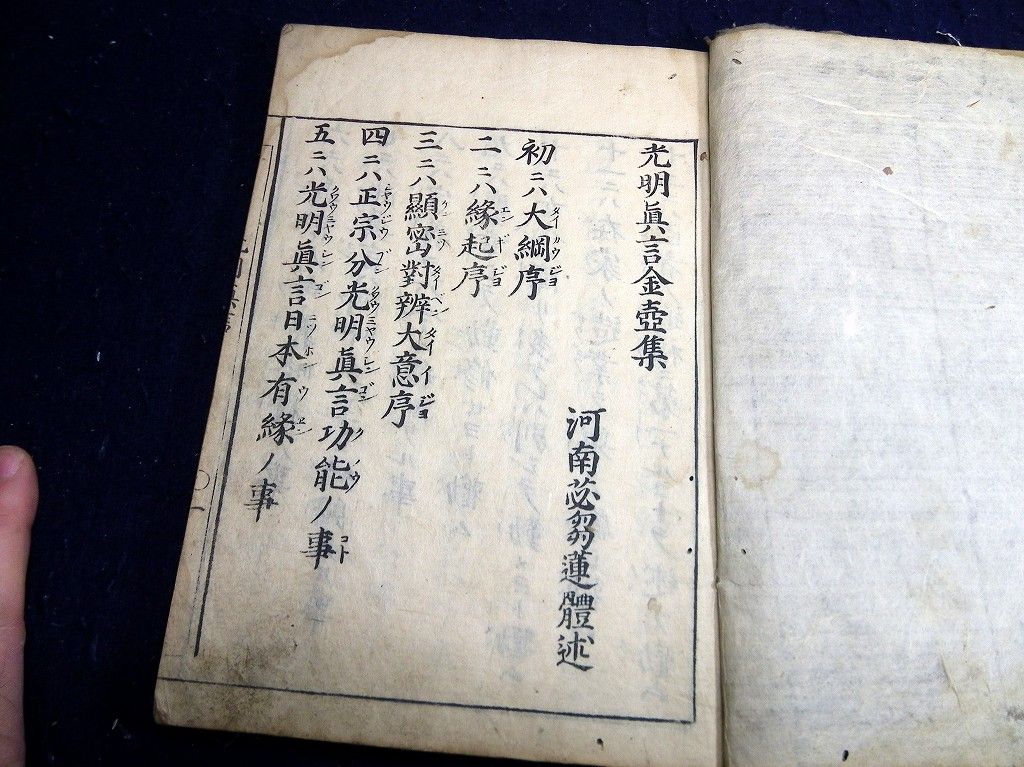 光明眞言金壺集
河南苾芻蓮體述
初ニハ大綱序
二ニハ緣起序
三ニハ顯密對辨大意序
四ニハ正宗分光明眞言功能ノ事
五ニハ光明眞言日本有緣ノ事